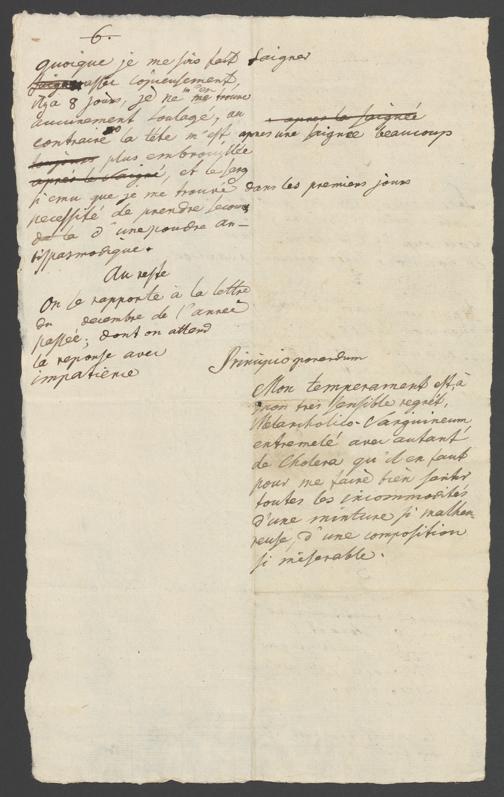 6.
quoique je me sois fait Saigner
saigner assez copieusement,
il y a 8 jours, je ne m'en
me trouve
aucunement soulagé, au
- apres la saignée
contraire la tête m'est apres une saignée beaucoup
toujours plus embrouillée
après le saigné, et le sang
si emu que je me trouve dans les premiers jours
necessité de prendre secours
de la d'une poudre an-
tispasmodique.
Au reste
On se rapporte à la lettre
du decembre de l'année
passée; dont on attend
la reponse avec
impatience
Principio ponendum
Mon temperament est, à
mon très sensible regrêt,
Melancholico-Sanguineum,
entremelé avec autant
de Cholera qu'il en faut
pour me faire bien sentir
toutes les incommodités
d'une mixture si malheu-
reuse, d'une composition
si miserable.